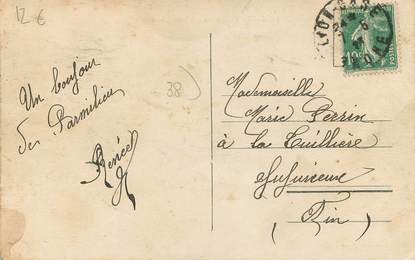 12 €
38
Un bonjour
de Parmilieu
Renée
Mademoiselle
Marie Perrin
à la Tuillière
Jujurieux
(Ain)
10